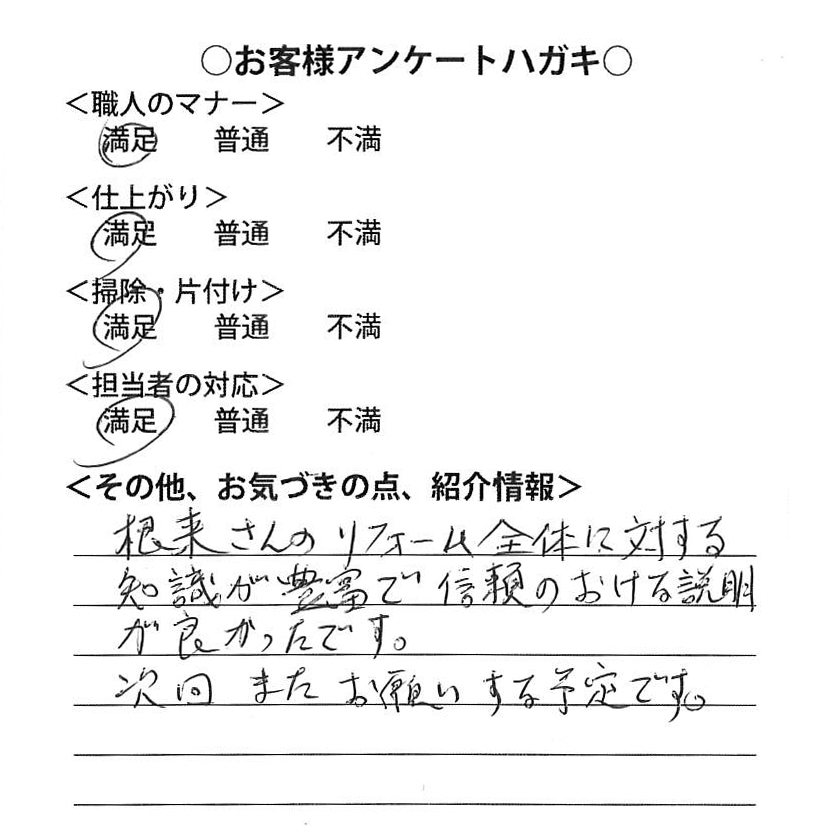 ○お客様アンケートハガキ○
＜職人のマナー＞
満足 普通 不満
＜仕上がり＞
満足 普通 不満
＜掃除・片付け＞
満足 普通 不満
＜担当者の対応＞
満足 普通 不満
＜その他、お気づきの点、紹介情報＞
根来さんのリフォーム全体に対する
知識が豊富で信頼のおける説明
が良かったです。
次回またお願いする予定です。